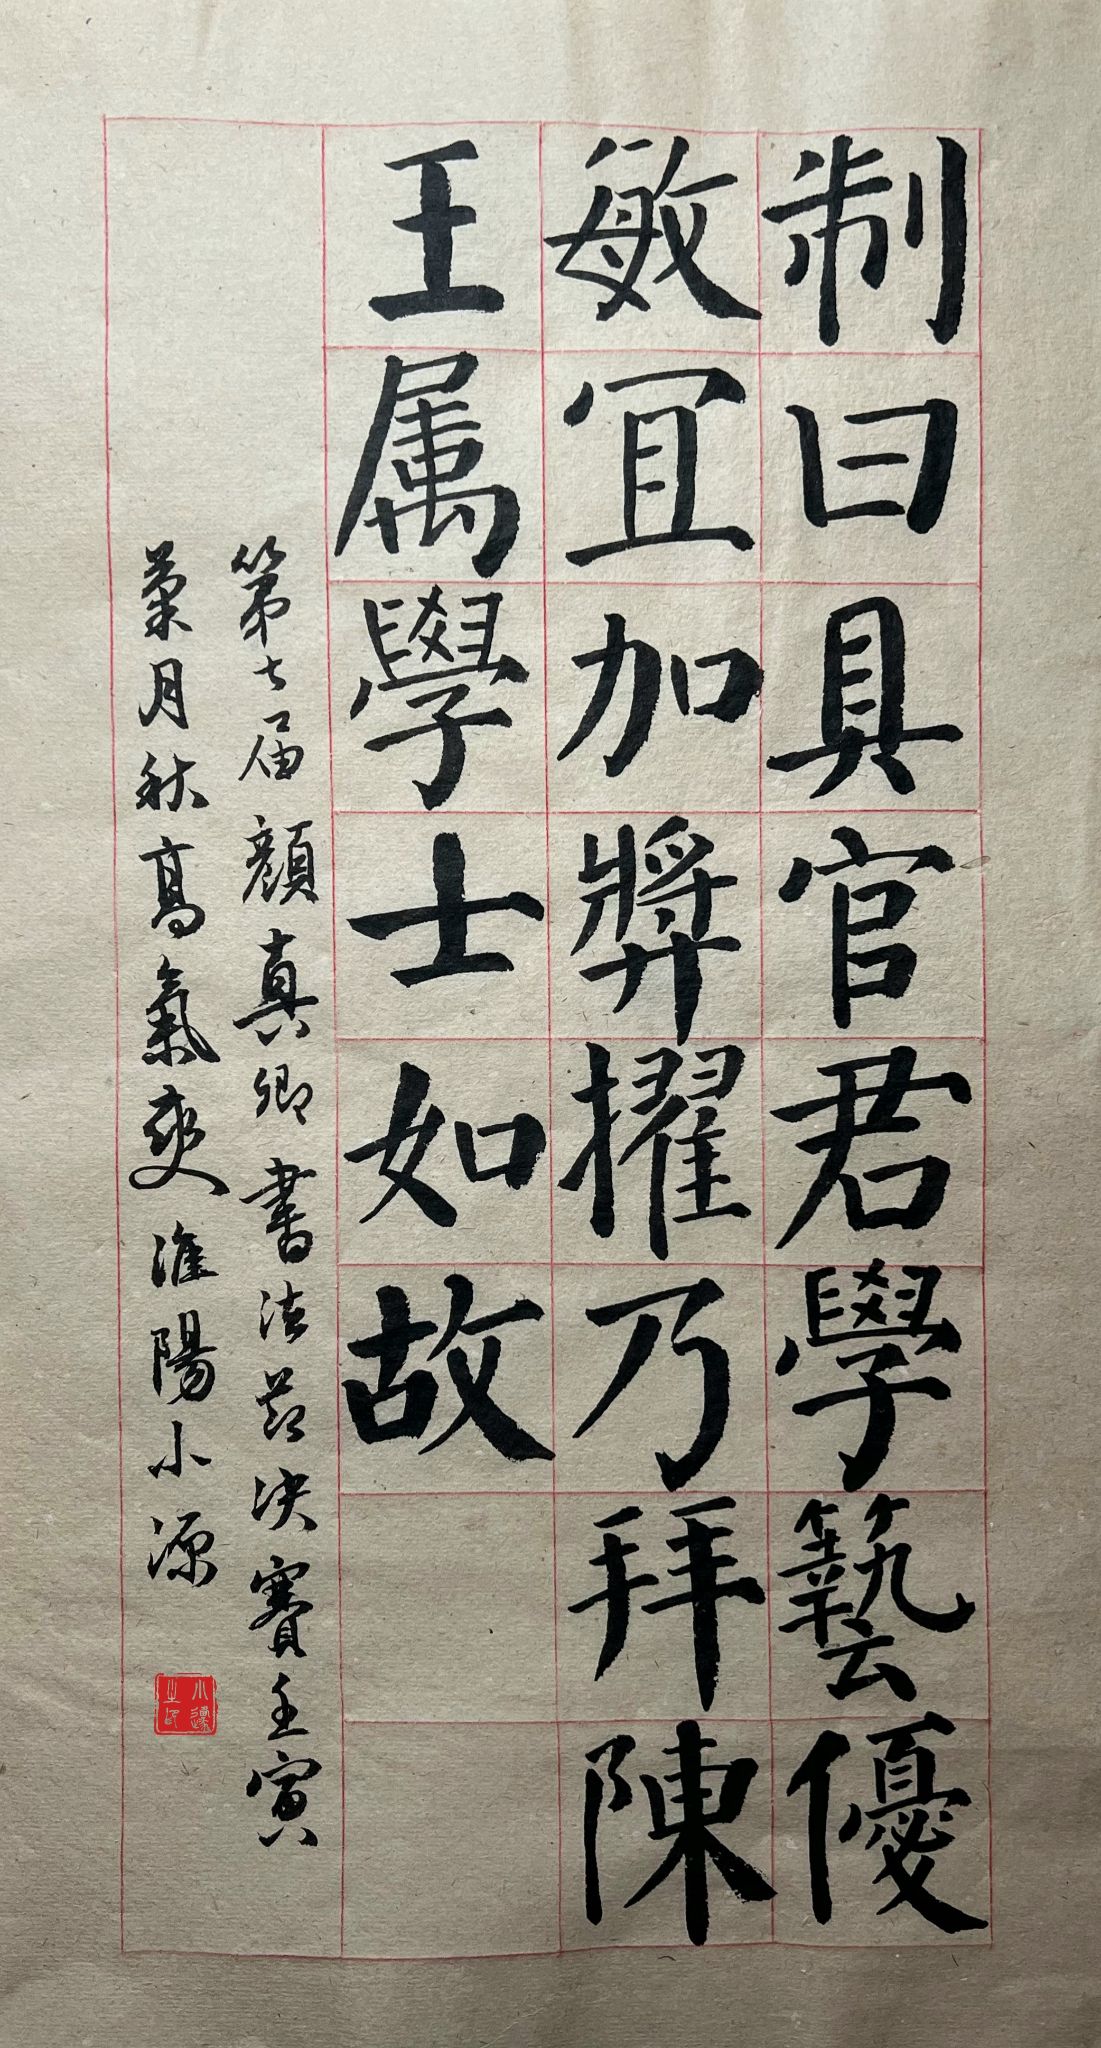 制曰具官君學藝優
敏宜加奬擢乃拜陳
王属學士如故
第七届顔真卿書法節决賽壬寅
菊月秋高氣爽淮陽小源